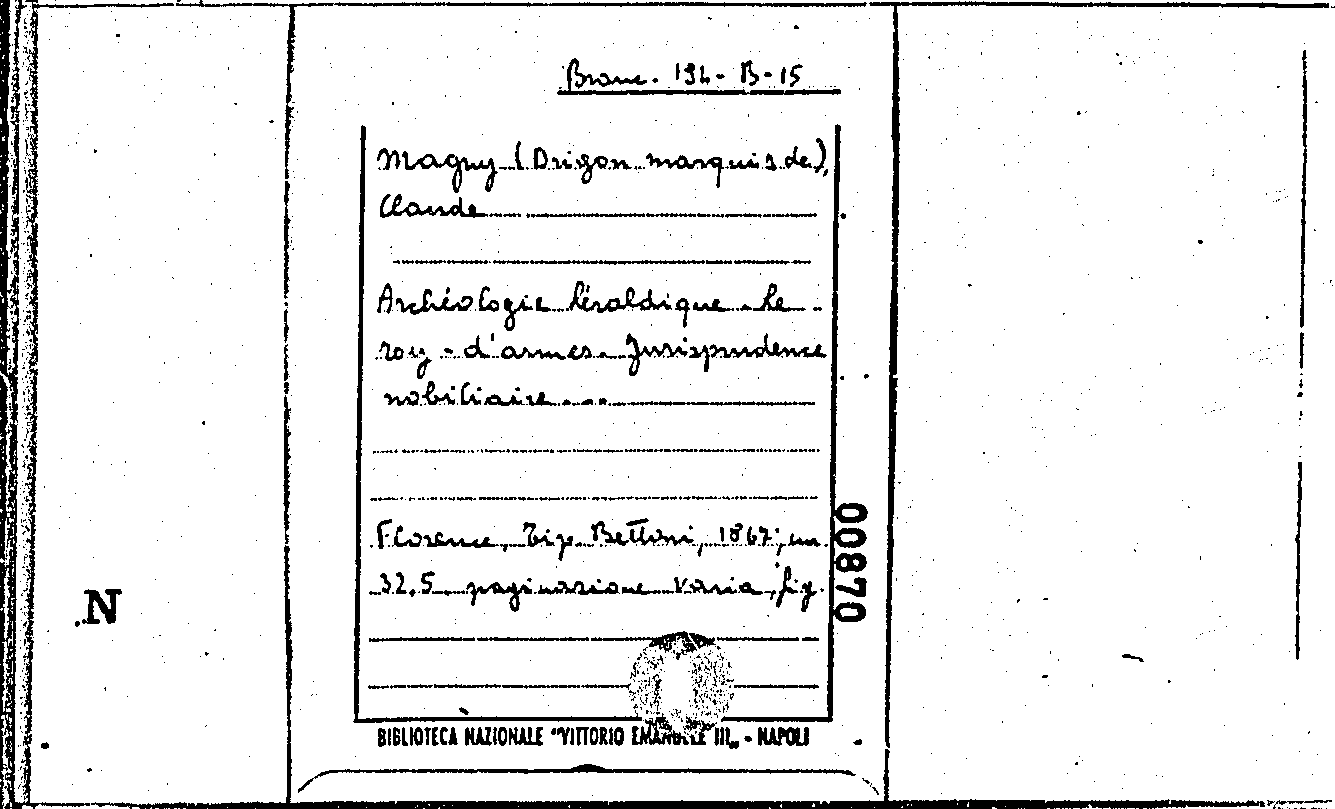 Branc. 194 - B - 15
Magny (Drigon marquis de),
Claude
Archéologie héraldique. Le
roy - d'armes. Jurisprudence
nobiliaire...
Florence, Tip. Bettoni, 1867; cm
32,5 paginazione varia, fig.
00870
N
BIBLIOTECA NAZIONALE "VITTORIO EMANUELE III" - NAPOLI